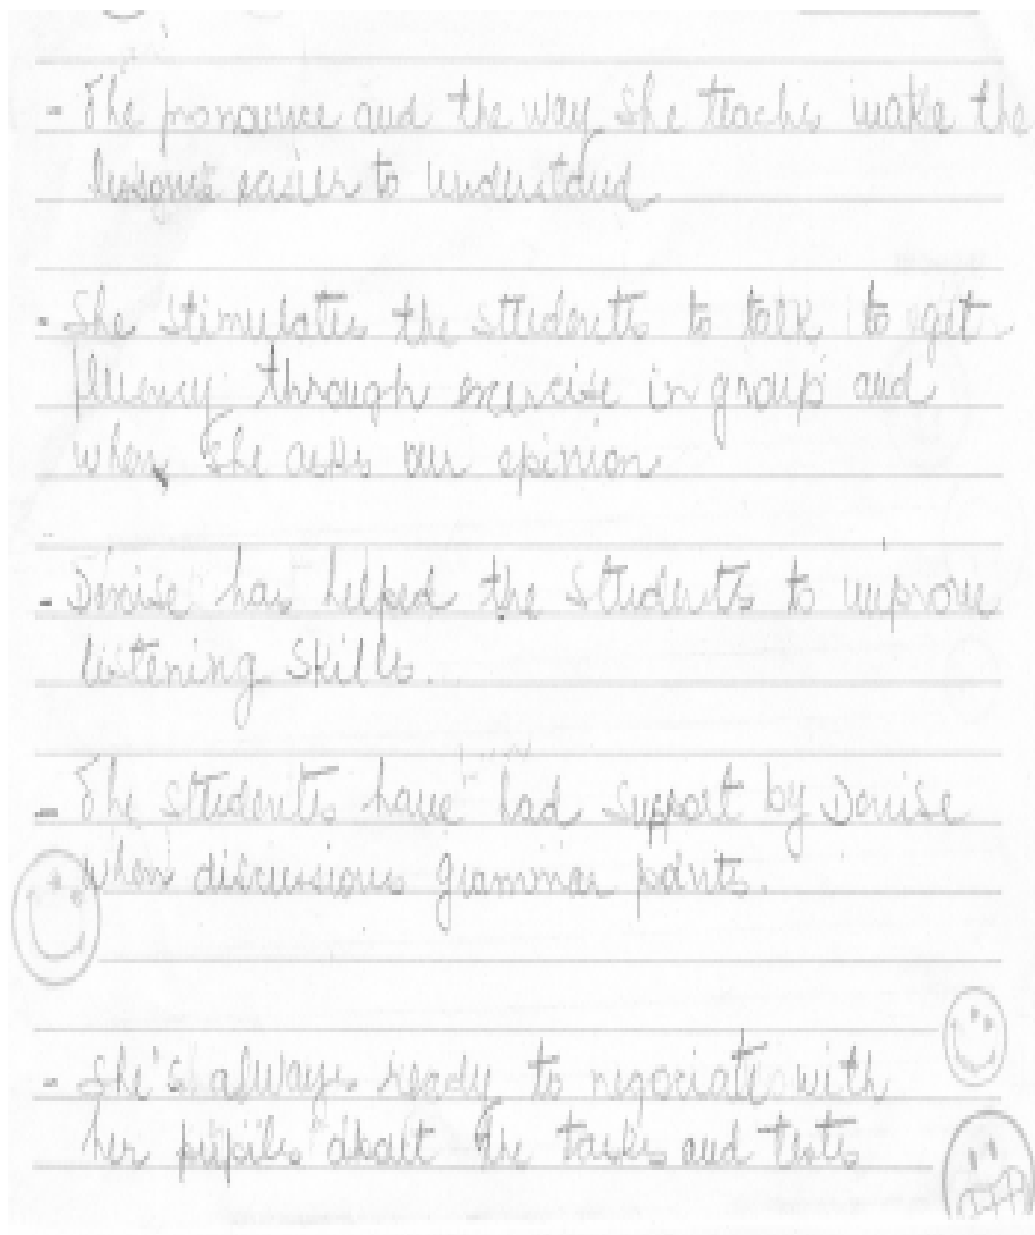 - The pronounce and the way she teachs make the
lessons easier to understand
- She stimulates the students to talk to get
fluency through exercise in group and
when she asks our opinion
- Denise has helped the students to improve
listening skills.
- The students have had support by Denise
when discussions grammar points.
- She's always ready to negociate with
her pupils about the tasks and tests